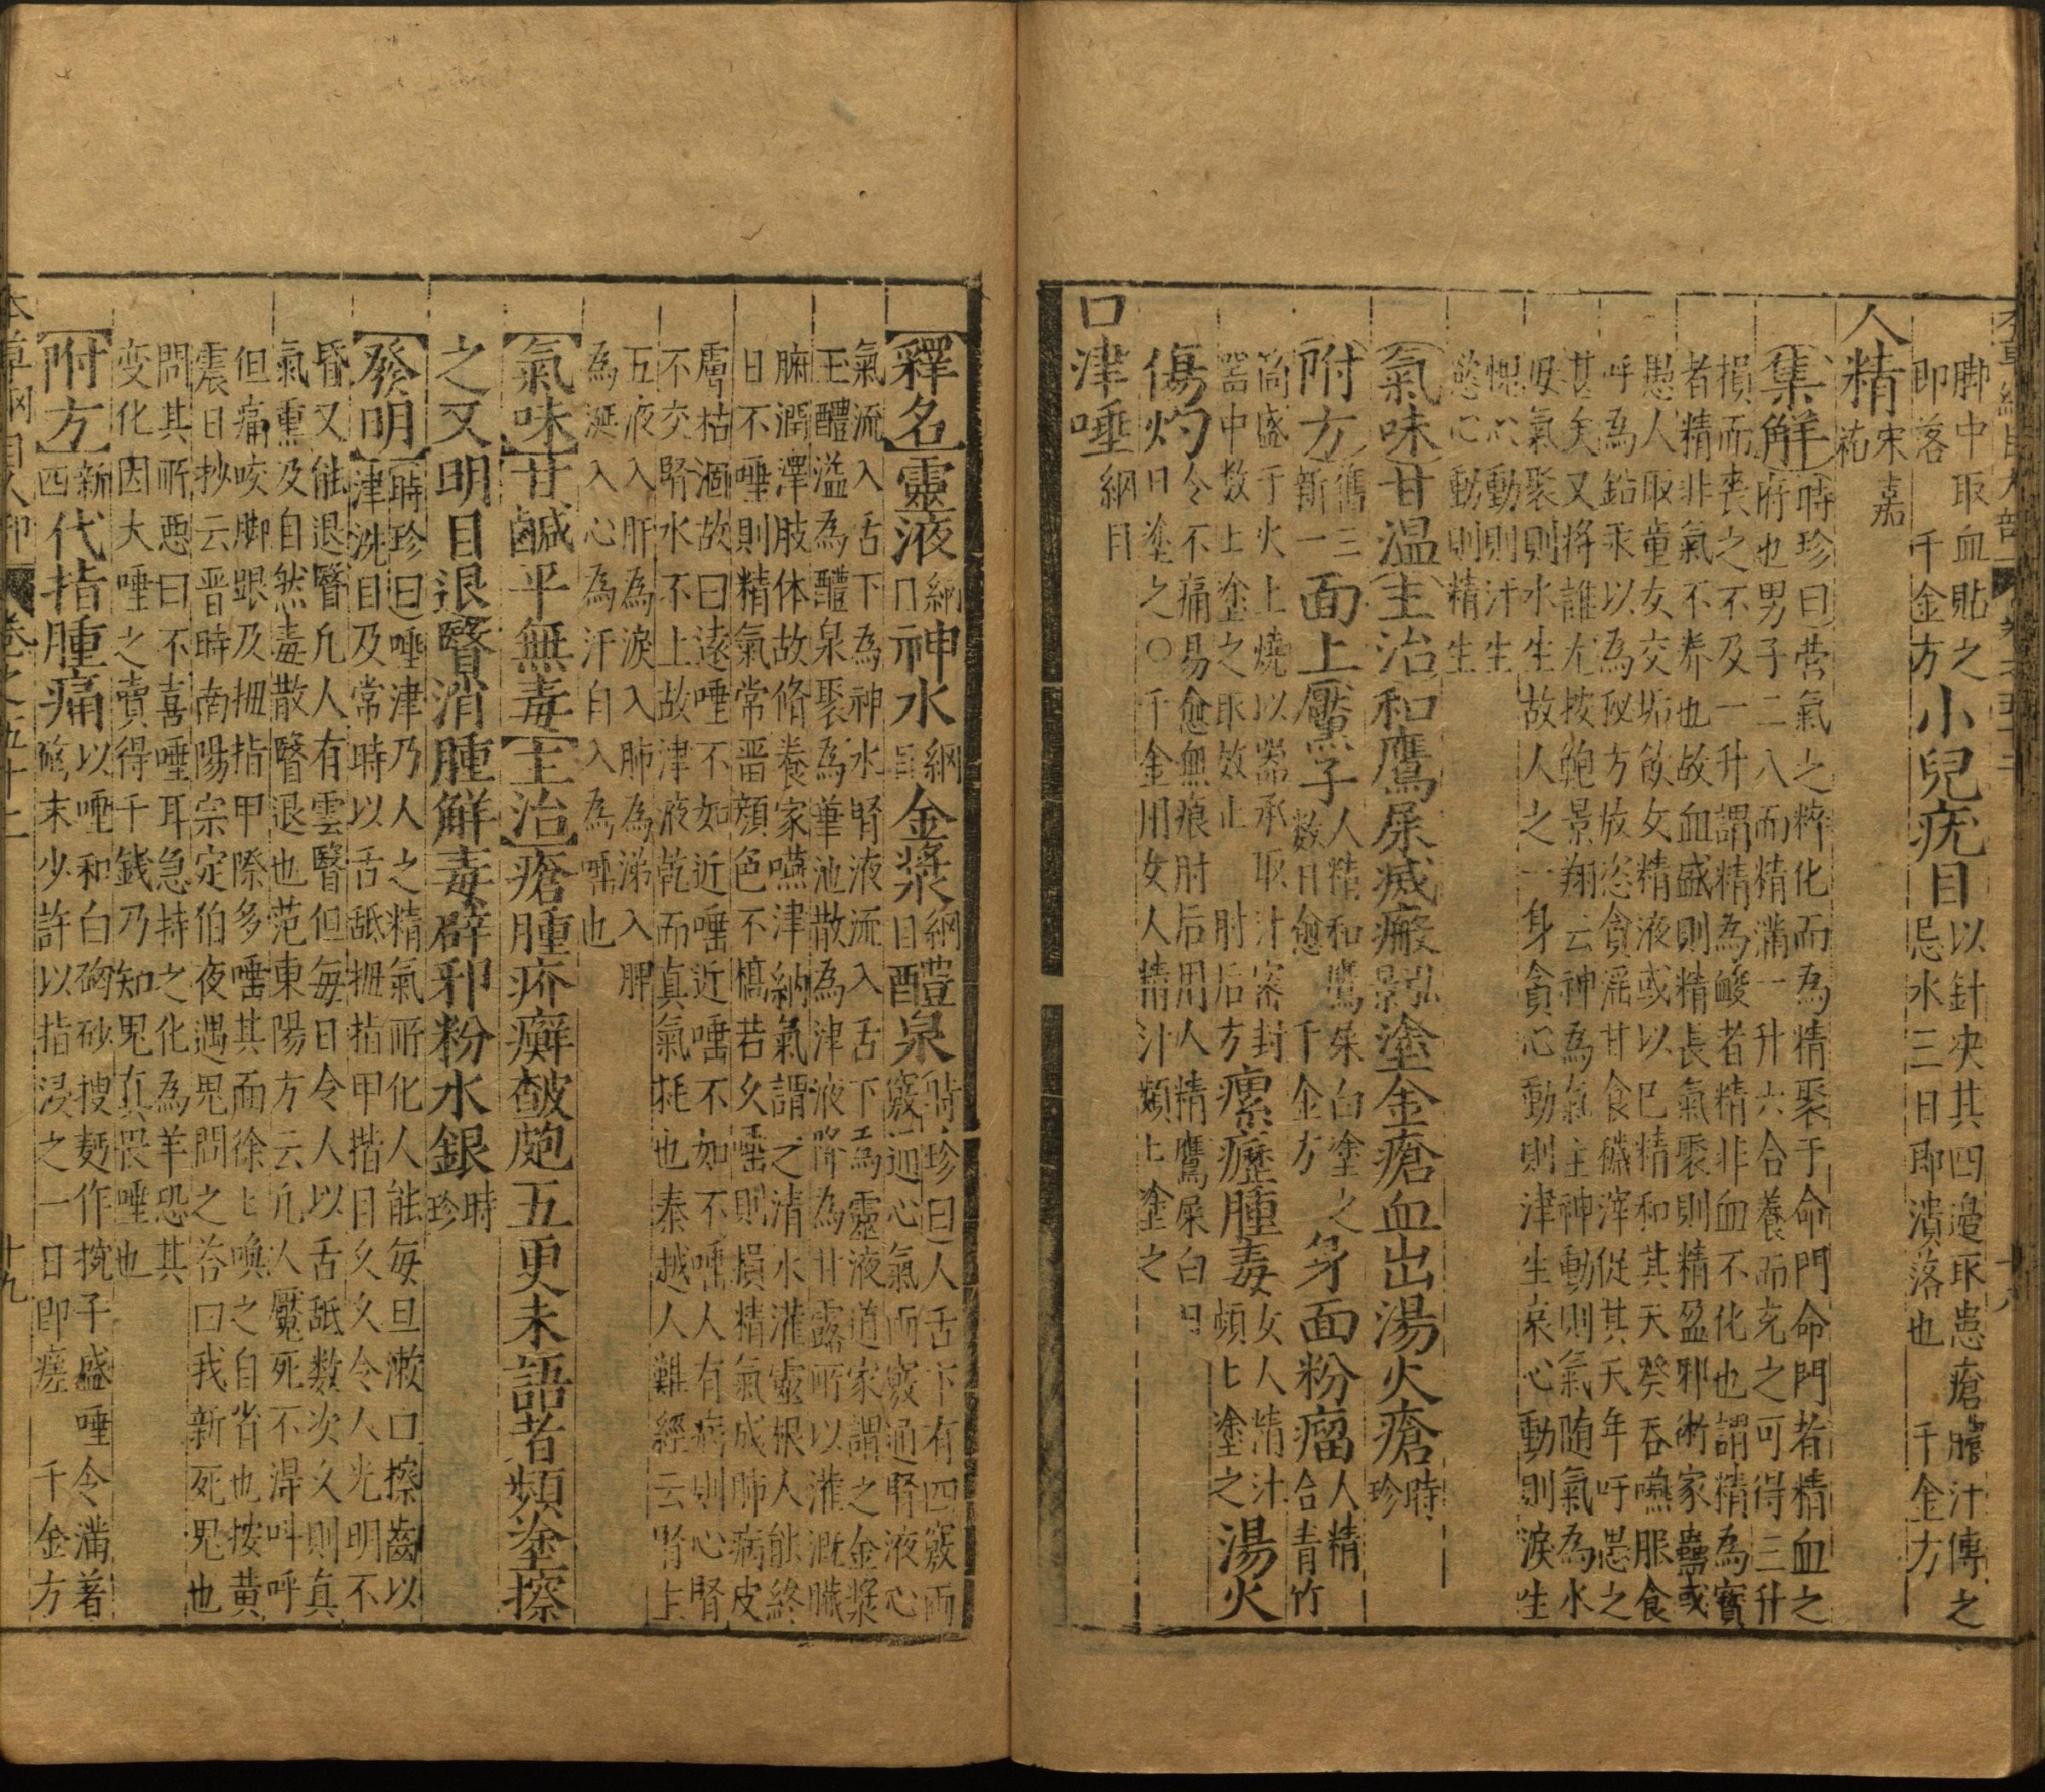 本草綱目人部 卷之五十二 十八
脚中取血貼之即落 千金方 小兒疣目 以針决其四邉取患瘡膿汁傅之忌水三日即潰落也 千金方
人精 宋嘉祐
集解 時珍曰营氣之粹化而為精聚于命門命門者精血之府也男子二八而精滿一升六合養而充之可得三升
損而喪之不及一升謂精為峻者精非血不化也謂精為寶者精非氣不养也故血盛則精長氣聚則精盈邪術家蠱惑
愚人取童女交垢飲女精液或以巳精和其天癸吞嚥服食呼為鉛汞以為秘方放恣貪滛甘食穢滓促其天年吁愚之
甚矣又将誰尤按鮑景翔云神為氣主神動則氣随氣為水母氣聚則水生故人之一身貪心動則津生哀心動則淚生
愧心動則汗生慾心動則精生
氣味 甘温 主治 和鷹屎滅瘢弘景塗金瘡血出湯火瘡時珍
附方 舊三新一 面上黶子 人精和鷹屎白塗之数日愈 千金方 身面粉瘤 人精合青竹
筒盛于火上燒以器承取汁密封器中数上塗之取效止 肘后方 瘰癧腫毒 女人精汁頻上塗之 湯火
傷灼 令不痛易愈無痕肘后用人精鷹屎白日日塗之○千金用女人精汁頻上塗之
口津唾 綱目
釋名 靈液綱目 神水綱目 金漿綱目 醴泉 時珍曰人舌下有四竅兩竅通心氣兩竅通腎液心
氣流入舌下為神水腎液流入舌下為靈液道家謂之金漿玉醴溢為醴泉聚為華池散為津液降為甘露所以灌溉臟
腑潤澤肢体故脩養家嚥津納氣謂之清水灌靈根人能終日不唾則精氣常畱顔色不槁若久唾則損精氣成肺病皮
膚枯涸故曰遠唾不如近唾近唾不如不唾人有病則心腎不交腎水不上故津液乾而真氣耗也秦越人難經云腎主
五液入肝為淚入肺為涕入脾為涎入心為汗自入為唾也
氣味 甘鹹平無毒 主治 瘡腫疥癬皶皰五更未語者頻塗擦
之又明目退瞖消腫解毒辟邪粉水銀時珍
發明 時珍曰唾津乃人之精氣所化人能每旦漱口擦齒以津洗目及常時以舌舐拇指甲揩目久久令人光明不
昏又能退瞖凢人有雲瞖但每日令人以舌舐数次久則真氣熏及自然毒散瞖退也范東陽方云凢人魘死不淂呌呼
但痛咬脚跟及拇指甲際多唾其面徐上喚之自省也按黄震日抄云晋時南陽宗定伯夜遇鬼問之荅曰我新死鬼也
問其所惡曰不喜唾耳急持之化為羊恐其变化因大唾之賣得千錢乃知鬼真畏唾也
附方 新四 代指腫痛 以唾和白硇砂搜麪作捥子盛唾令滿着硇末少許以指浸之一日即瘥 千金方
本草綱目人部 卷之五十二 十九